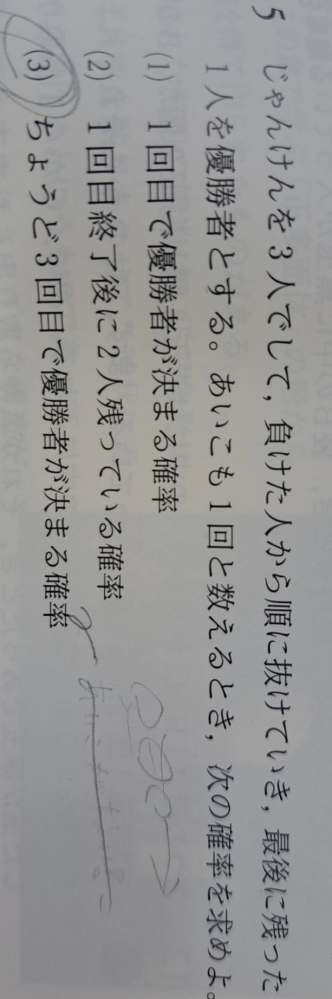 5 じゃんけんを3人でして，負けた人から順に抜けていき，最後に残った
1人を優勝者とする。あいこも1回と数えるとき，次の確率を求めよ。
(1) 1回目で優勝者が決まる確率
(2) 1回目終了後に2人残っている確率
(3) ちょうど3回目で優勝者が決まる確率